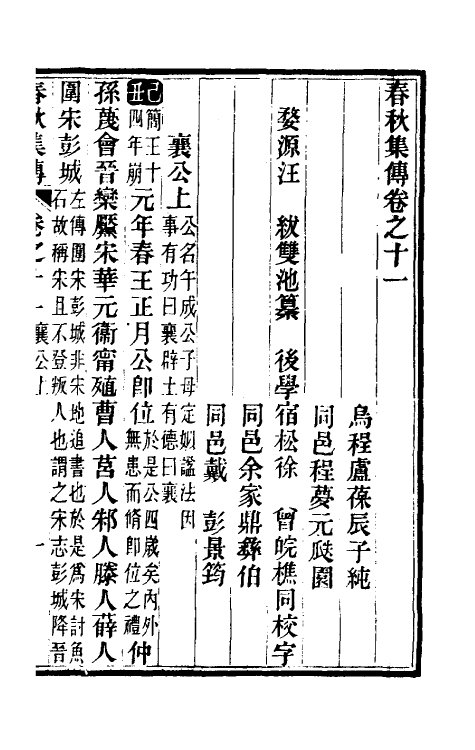 春秋集傳卷之十一
烏程盧葆辰子純
同邑程夢元燮園
婺源汪　紱雙池纂　後學宿松徐　曾皖樵同校字
同邑余家鼎彝伯
同邑戴　彭景筠
襄公上　公名午成公子母定姒謚法因
事有功曰襄辟土有德曰襄
己丑　簡王十
四年崩　元年春王正月公卽位　於是公四歲矣內外
無患而脩卽位之禮　仲
孫蔑會晉欒黶宋華元衞甯殖曹人莒人邾人滕人薛人
圍宋彭城　左傳圍宋彭城非宋地追書也於是爲宋討魚
石故稱宋且不登叛人也謂之宋志彭城降晉
春秋集傳　卷之十一　襄公上　一